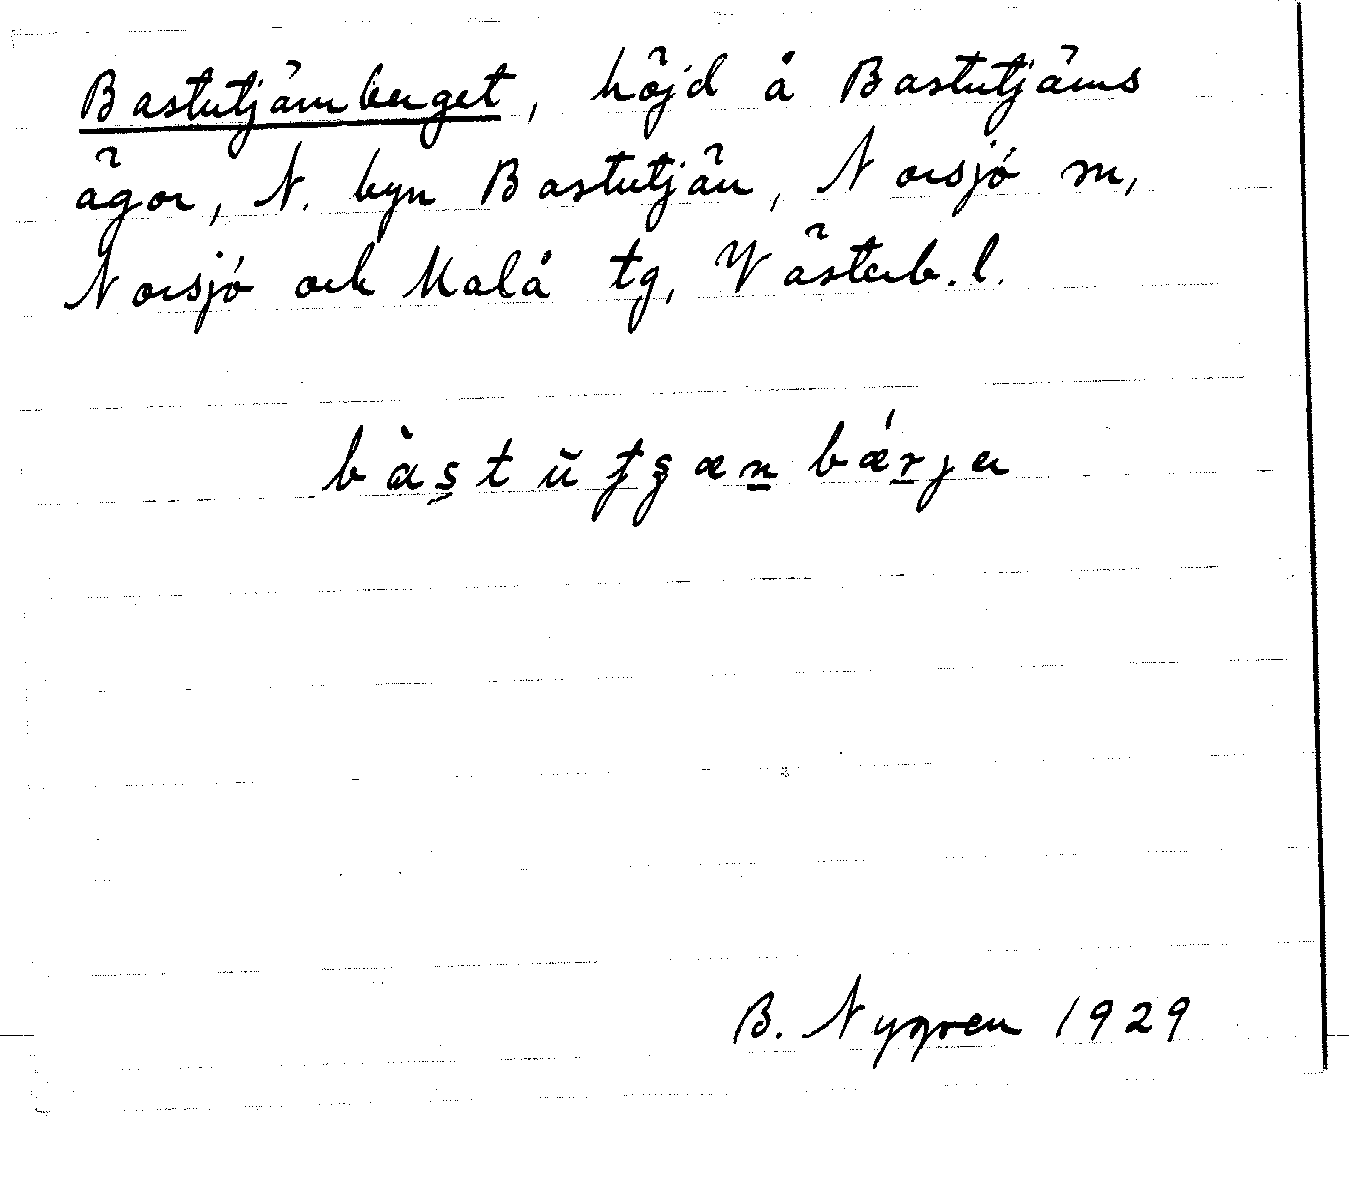 Bastutjärnberget, höjd å Bastutjärns
ägor, N. byn Bastutjärn, Norsjö sn,
Norsjö och Malå tg, Västerb. l.
B. Nygren 1929